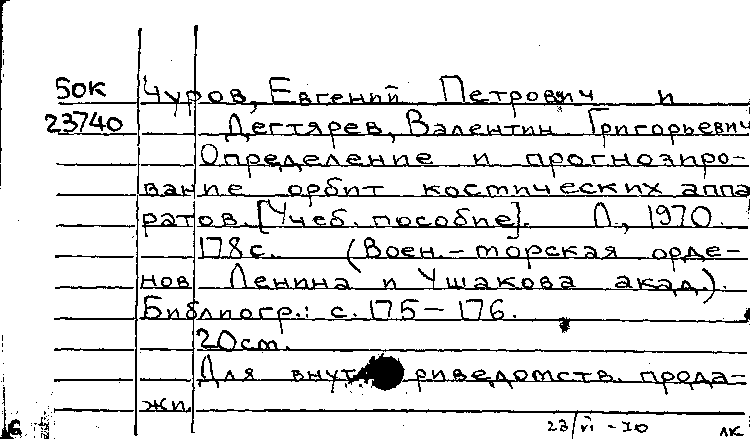 БОК Чуров, Евгений Петрович и
23740 Дегтярев, Валентин Григорьевич
Определение и прогнозиро-
вание орбит космических аппа
ратов. [Учеб. пособие]. Л., 1970.
178 с. (Воен.-морская орде-
нов Ленина и Ушакова акад.).
Библиогр.: с. 175 – 176.
20 см.
Для внутриведомств. прода-
жи.
23/VI - 70 лк